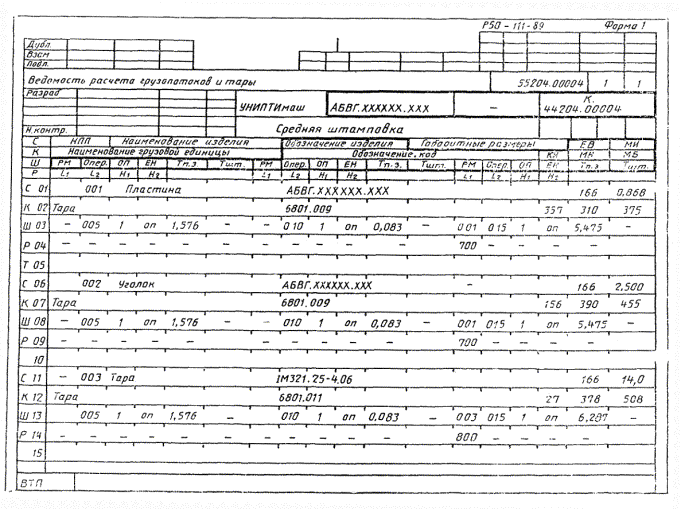 Р50-111-89 Форма 1
Дубл.
Взам
Подл.
Ведомость расчета грузопотоков и тары 55204.00004 1 1
Разраб
УНИПТИмаш АБВГ.ХХХХХХ.ХХХ – К. 44204.00004
Н.контр. Средняя штамповка
С НПП Наименование изделия Обозначение изделия Габаритные размеры ЕВ МИ
К Наименование грузовой единицы Обозначение, код КИ МН МБ
Ш РМ Опер. ОП ЕН Тп.з. Тшт. РМ Опер. ОП ЕН Тп.з. Тшт. РМ Опер. ОП ЕН Тп.з Тшт.
Р L1 L2 H1 H2 L1 L2 H1 H2 L1 L2 H1 H2
С 01 001 Пластина АБВГ.ХХХХХХ.ХХХ 166 0,868
К 02 Тара 6801.009 357 310 375
Ш 03 – 005 1 оп 1,576 – – 010 1 оп 0,083 – 001 015 1 оп 5,475 –
Р 04 – – – – – – – – – – – – 700 – – – – –
Т 05
С 06 002 Уголок АБВГ.ХХХХХХ.ХХХ – 166 2,500
К 07 Тара 6801.009 156 390 455
Ш 08 – 005 1 оп 1,576 – – 010 1 оп 0,083 – 001 015 1 оп 5,475 –
Р 09 – – – – – – – – – – – – 700 – – – – –
10
С 11 – 003 Тара 1М321.25-4.06 166 14,0
К 12 Тара 6801.011 27 378 508
Ш 13 005 1 оп 1,576 – 010 1 оп 0,083 – 003 015 1 оп 6,287 –
Р 14 – – – – – – – – – – – – 800 – – – – –
15
ВТП